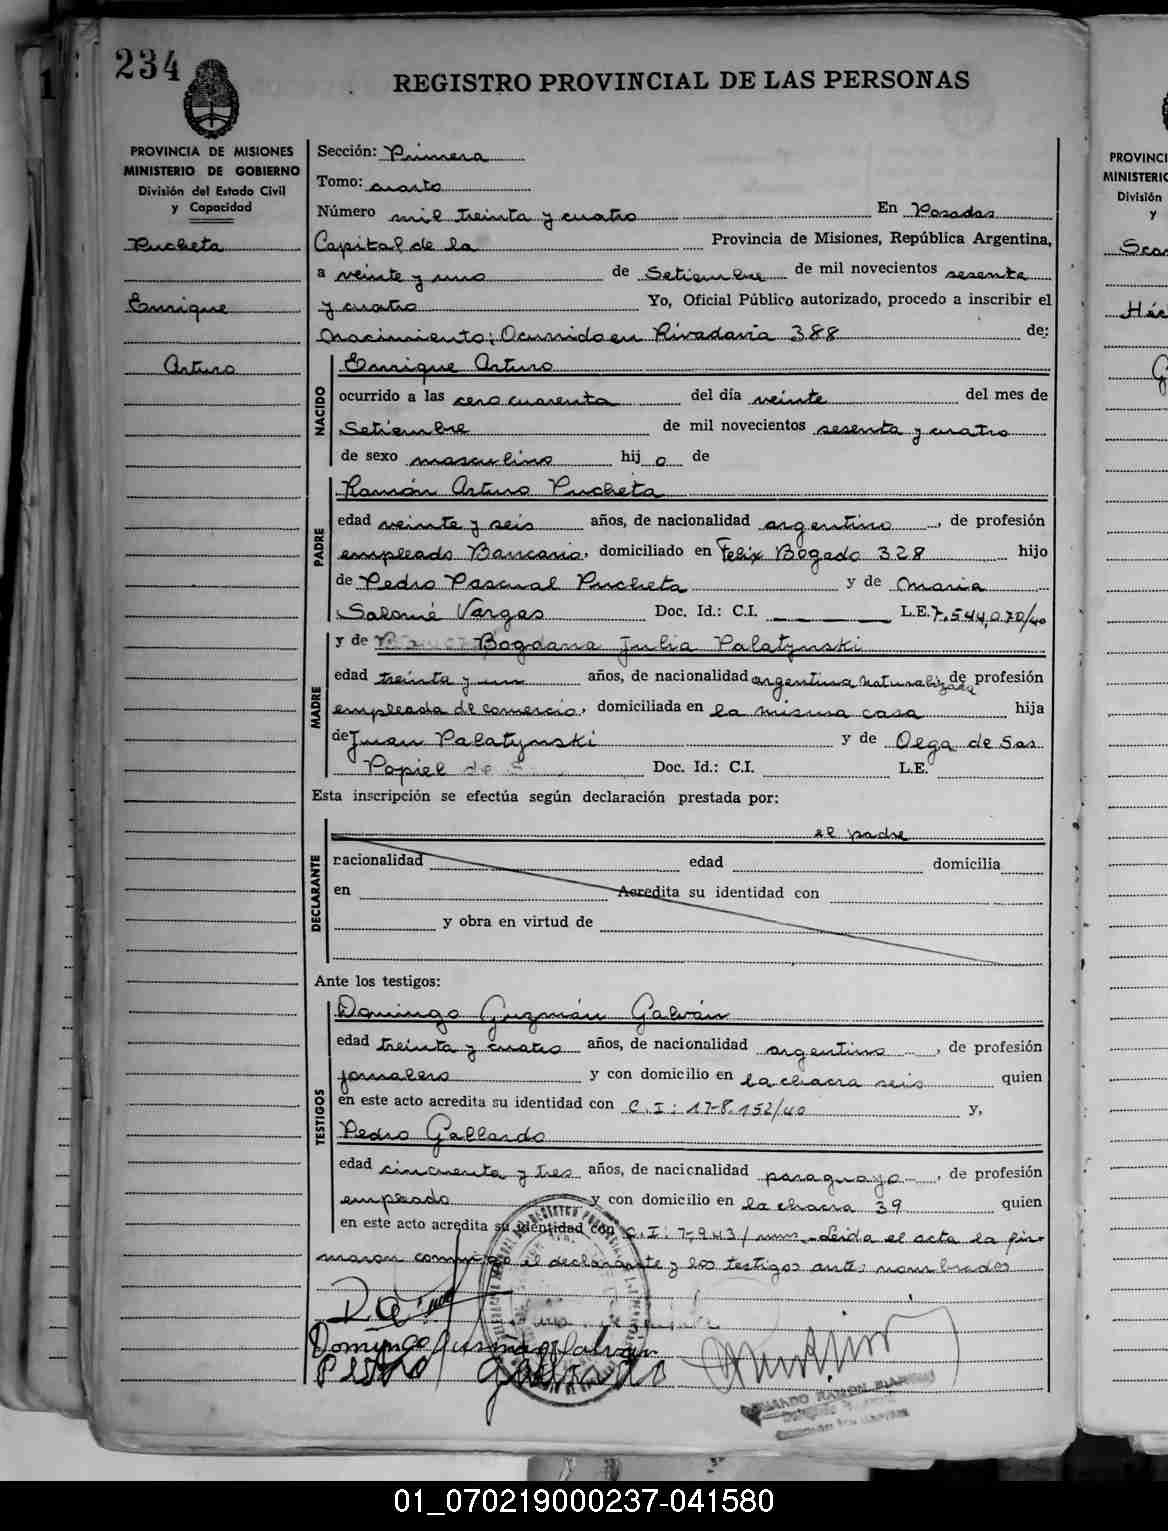 234
REGISTRO PROVINCIAL DE LAS PERSONAS
PROVINCIA DE MISIONES
MINISTERIO DE GOBIERNO
División del Estado Civil
y Capacidad
Pucheta
Enrique
Arturo
Sección: Primera
Tomo: cuarto
Número mil treinta y cuatro En Posadas
Capital de la Provincia de Misiones, República Argentina,
a veinte y uno de Setiembre de mil novecientos sesenta
y cuatro Yo, Oficial Público autorizado, procedo a inscribir el
Nacimiento; Ocurrido en Rivadavia 388 de:
NACIDO
Enrique Arturo
ocurrido a las cero cuarenta del día veinte del mes de
Setiembre de mil novecientos sesenta y cuatro
de sexo masculino hij o de
PADRE
Ramón Arturo Pucheta
edad veinte y seis años, de nacionalidad argentino, de profesión
empleado Bancario, domiciliado en Felix Bogado 328 hijo
de Pedro Pascual Pucheta y de Maria
Salomé Vargas Doc. Id.: C.I. L.E. 7.544.070/40
MADRE
y de Bogdana Julia Palatynski
edad treinta y un años, de nacionalidad argentina naturalizada de profesión
empleada de comercio, domiciliada en la misma casa hija
de Juan Palatynski y de Olga de Sas
Popiel Doc. Id.: C.I. L.E.
Esta inscripción se efectúa según declaración prestada por:
DECLARANTE
el padre
nacionalidad edad domicilia
en Acredita su identidad con
y obra en virtud de
Ante los testigos:
TESTIGOS
Domingo Guzmán Galván
edad treinta y cuatro años, de nacionalidad argentino, de profesión
jornalero y con domicilio en la chacra seis quien
en este acto acredita su identidad con C.I: 178.152/40 y,
Pedro Gallardo
edad cincuenta y tres años, de nacionalidad paraguayo, de profesión
empleado y con domicilio en la chacra 39 quien
en este acto acredita su identidad con C.I: 7.943/mns. Leída el acta la fir-
maron conmigo el declarante y los testigos antes nombrados
Domingo Guzmán Galván
Pedro Gallardo
PROVINCI
MINISTERIO
División
y
Héc
01_070219000237-041580